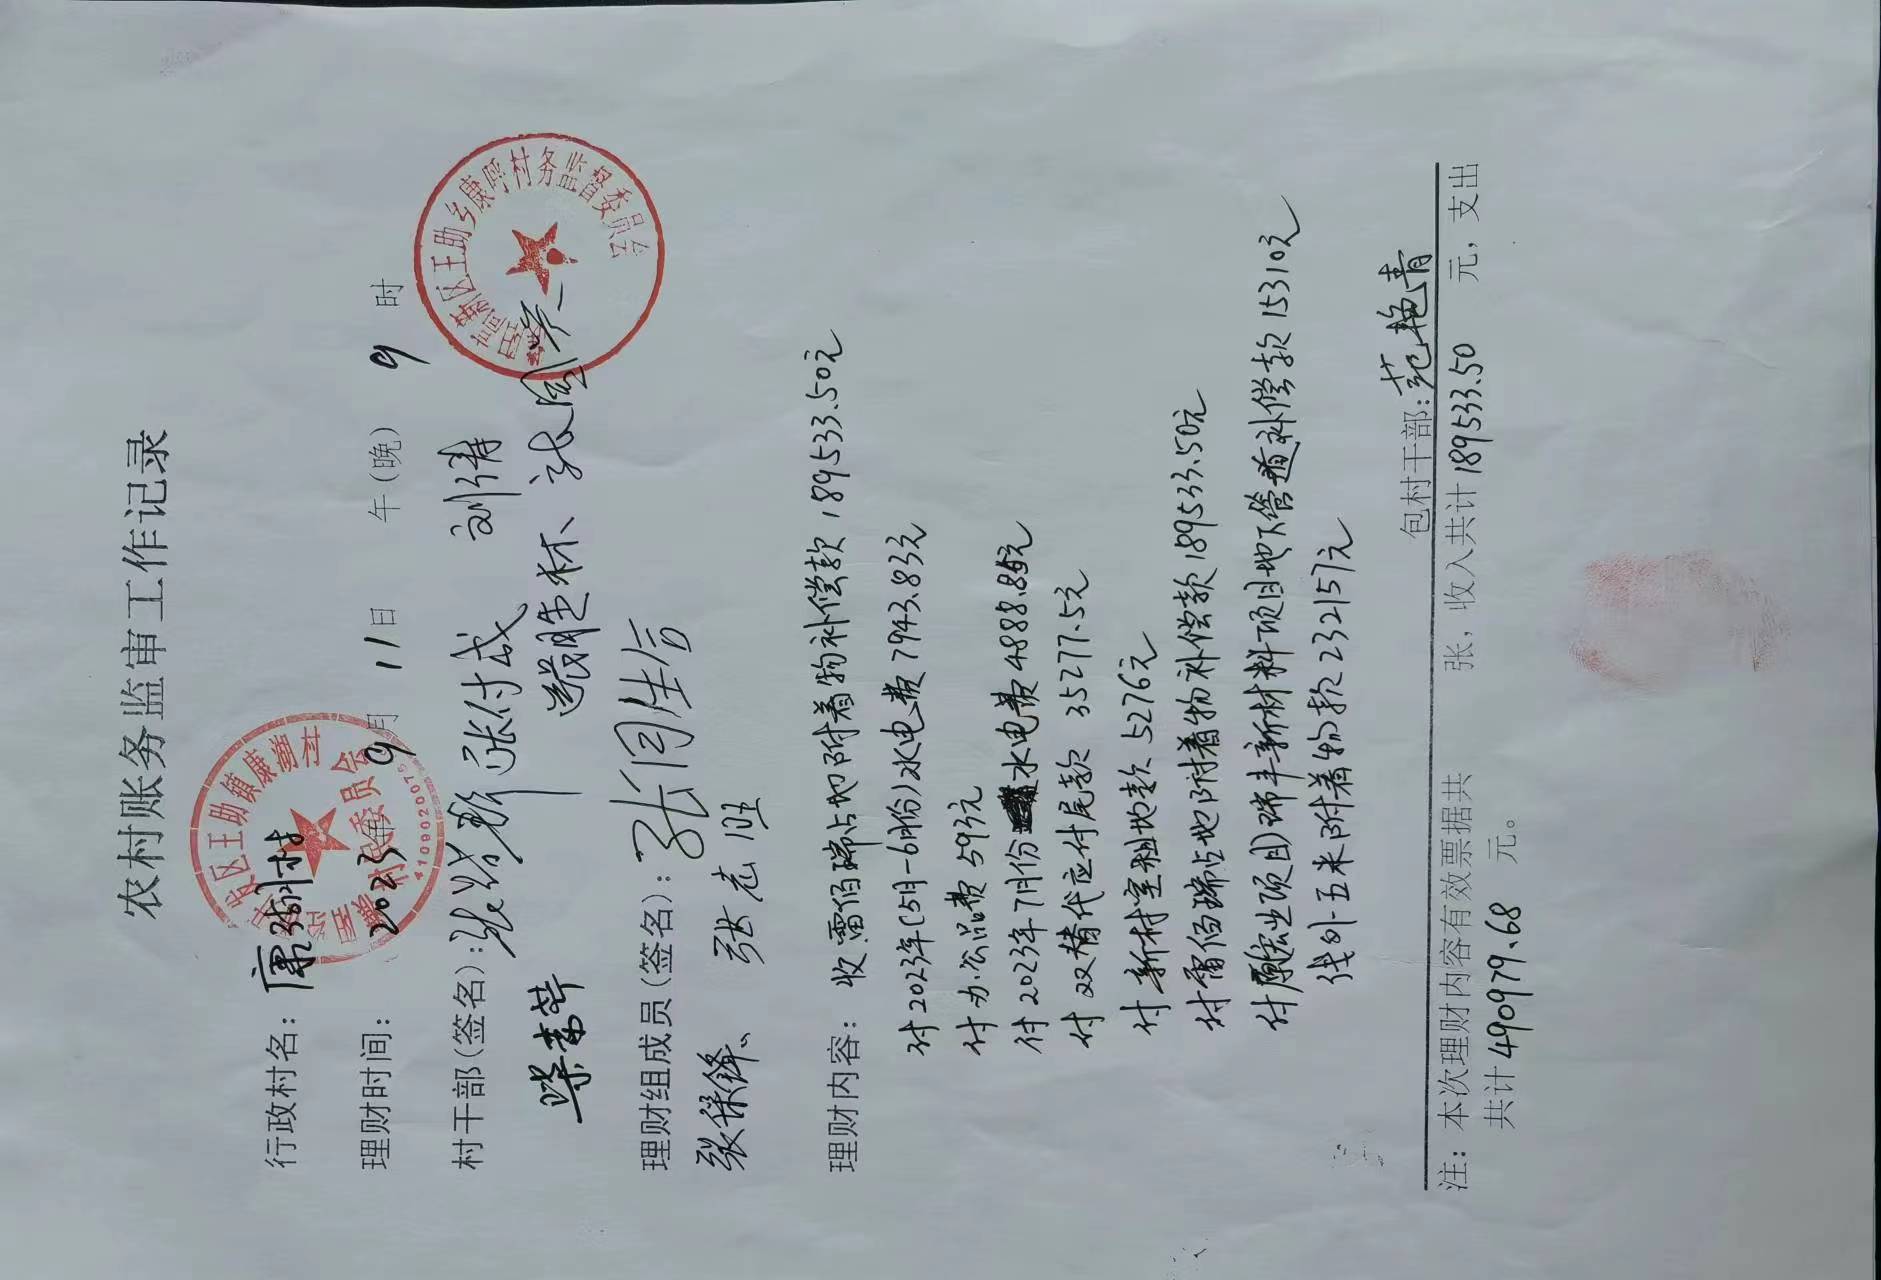 农村账务监审工作记录
行政村名：康渤村
理财时间：2023 9月 11日 午（晚） 9 时
村干部（签名）： 张付成 刘涛
柴素苹
理财组成员（签名）：张同生
张保锋、张志旺
理财内容：收雷佰瑞占地附着物补偿款189533.50元
付2023年（5月-6月份）水电费7943.83元
付办公品费593元
付2023年7月份水电费4888.85元
付双替代应付尾款35277.5元
付新村室租地款5276元
付雷佰瑞占地附着物补偿款189533.50元
付 宏业项目）瑞丰新材料项目地下管道补偿款15310元
线外五米附着物款232157元
包村干部：范艳青
注：本次理财内容有效票据共 张，收入共计189533.50 元，支出
共计490979.68 元。
高新区王助乡康呼村务监督委员会
区王助镇康渤村 村民委员会